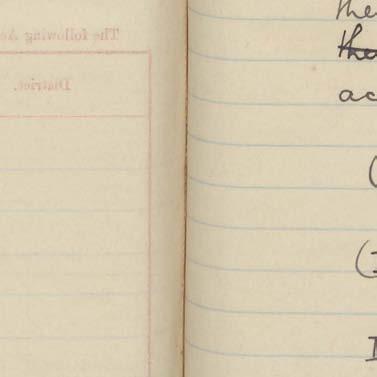 The following Ac
District.
the
the
ac
(
(I
I